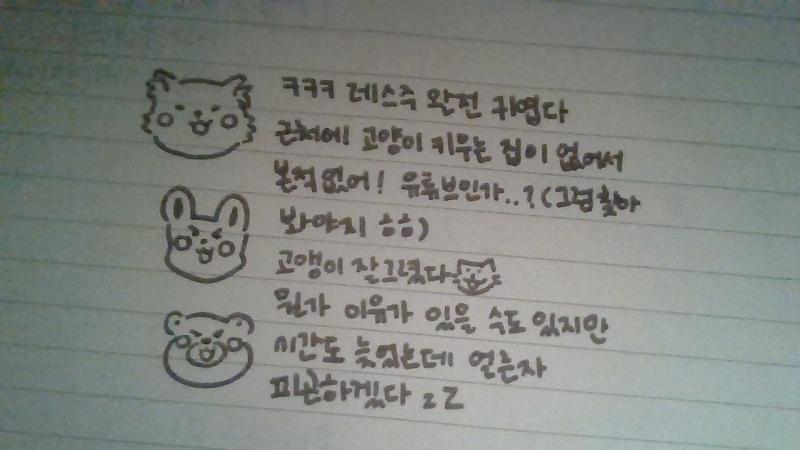 ㅋㅋㅋ 레스주 완전 귀엽다
근처에! 고양이 키우는 집이 없어서
본적없어! 유튜브인가..? (그럼 찾아
봐야지 ㅎㅎ)
고앵이 잘그렸다
뭔가 이유가 있을 수도 있지만
시간도 늦었는데 얼른자
피곤하겠다 z Z